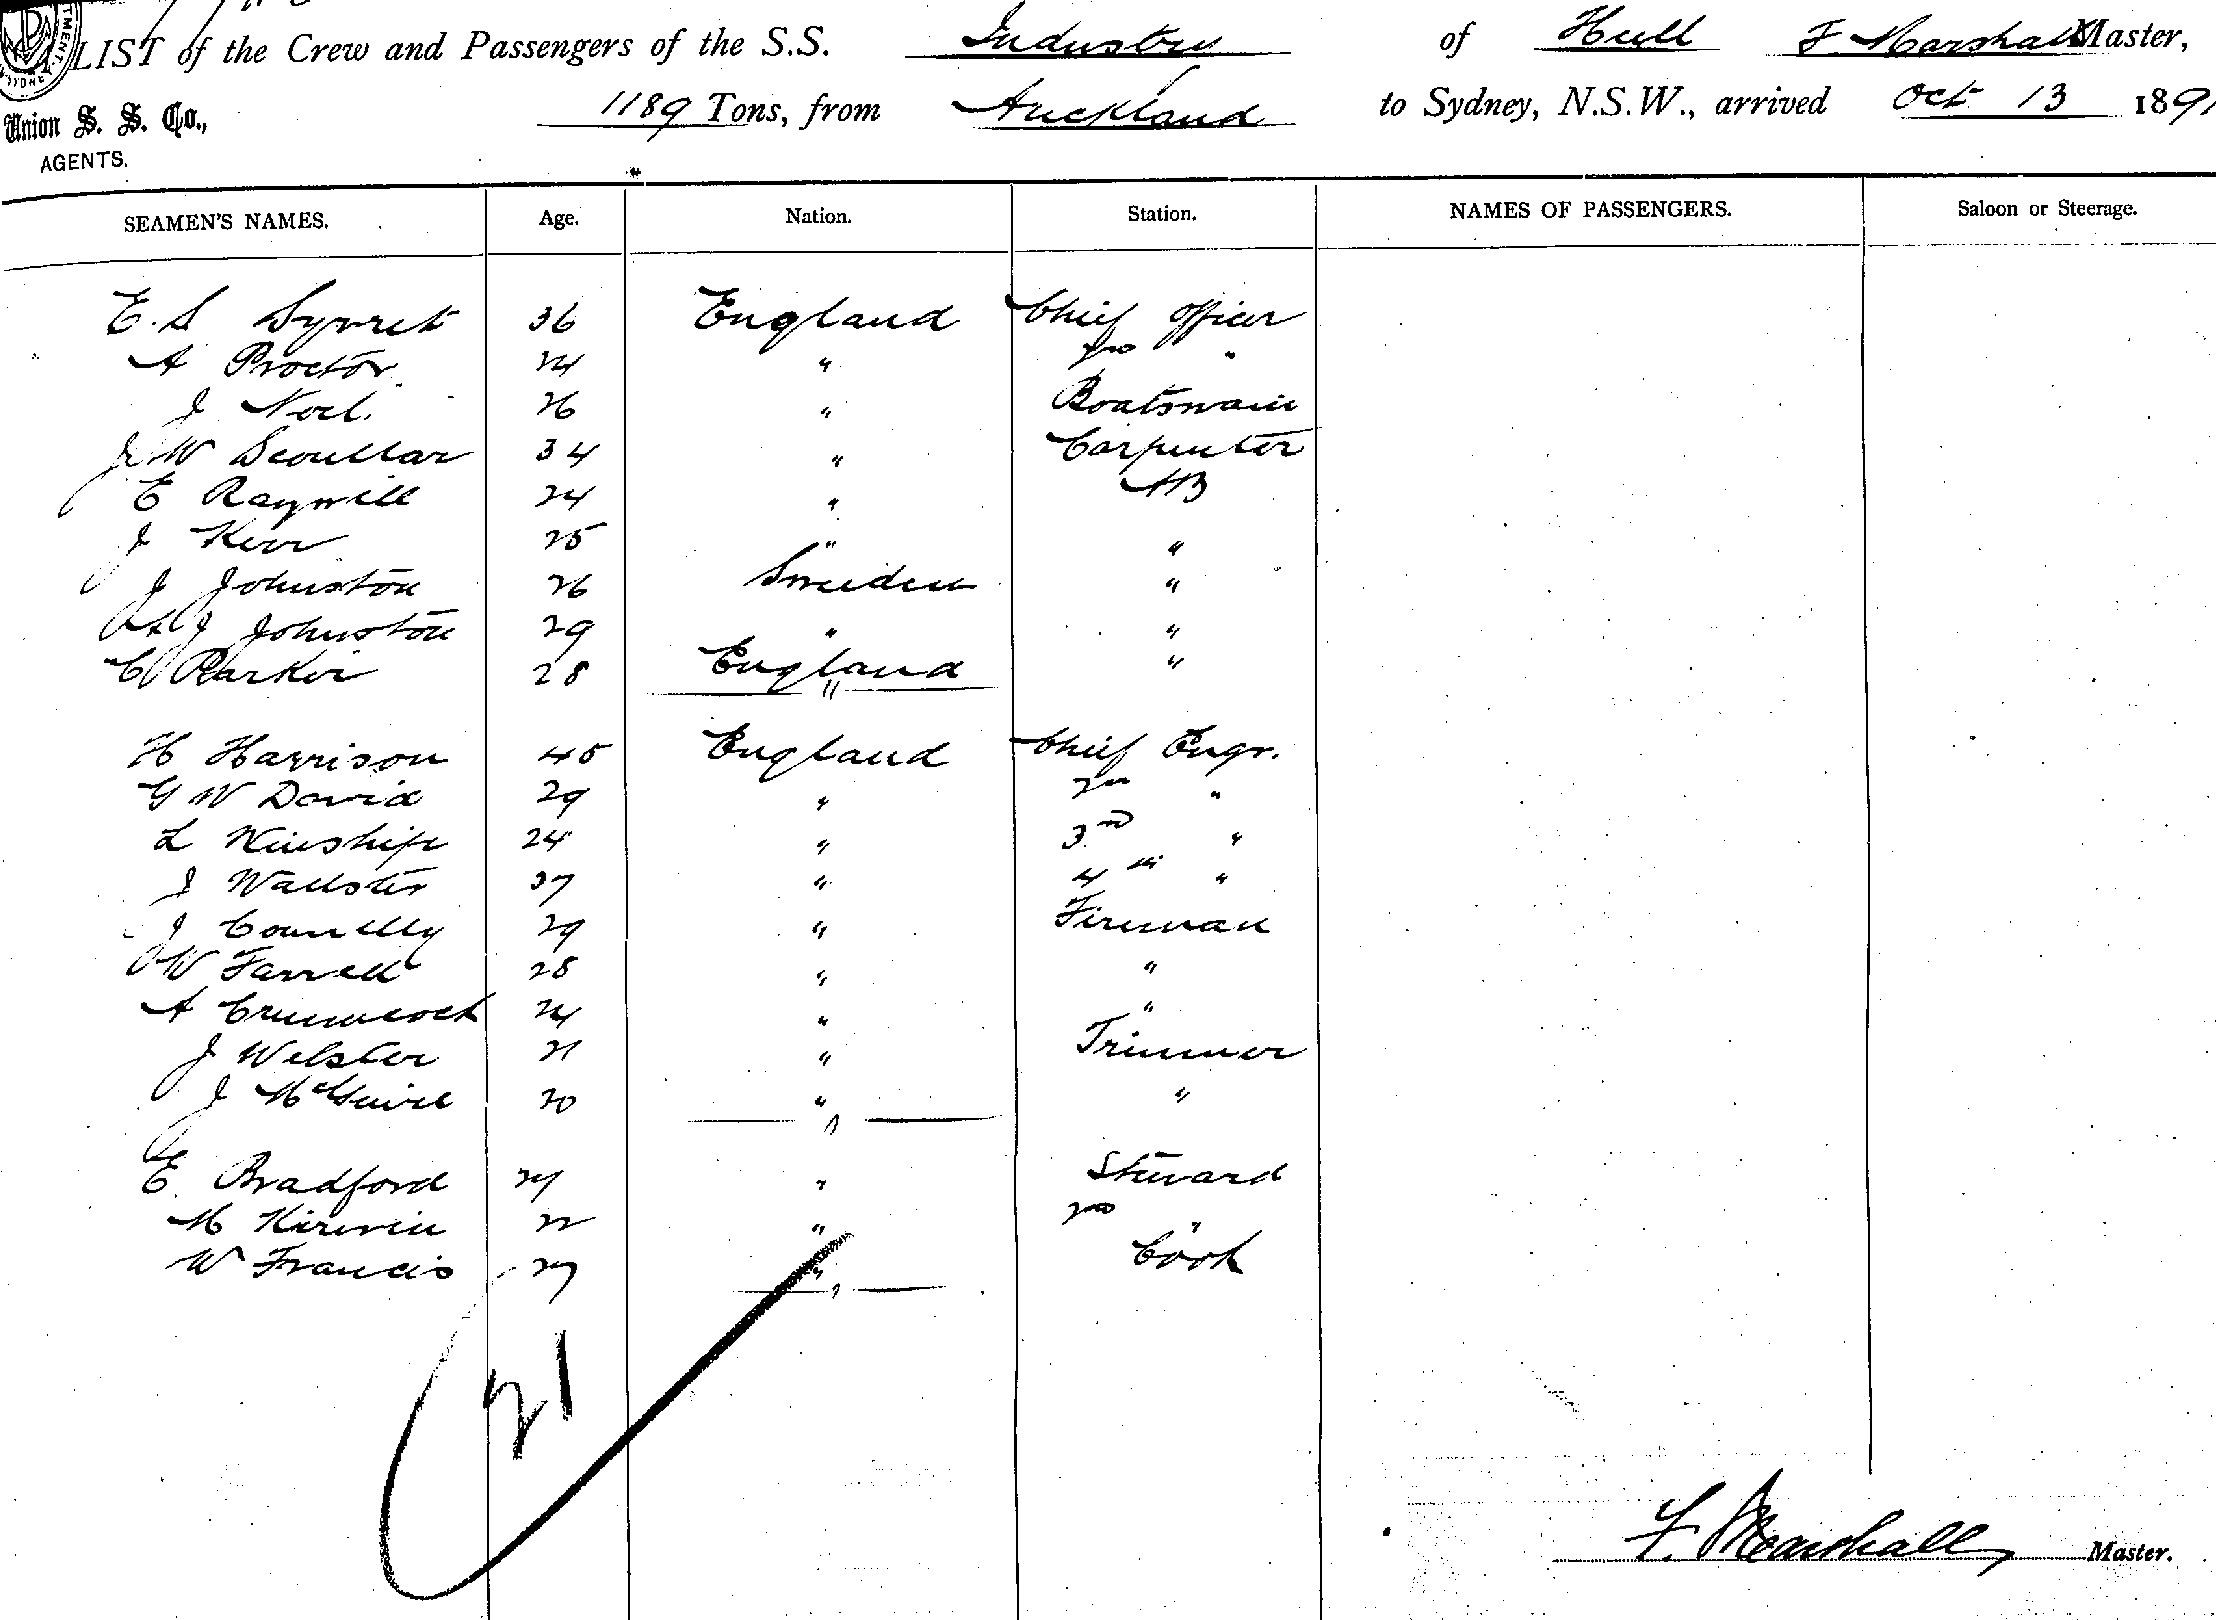 LIST of the Crew and Passengers of the S.S. Industry of Hull F Marshall Master,
Union S. S. Co., 1189 Tons, from Auckland to Sydney, N.S.W., arrived Oct 13 1891
AGENTS.
SEAMEN'S NAMES. Age. Nation. Station. NAMES OF PASSENGERS. Saloon or Steerage.
E. S Syvret 36 England Chief Officer
A Proctor 24 " "
J Noel 26 " Boatswain
J W Scoullar 34 " Carpenter
E Raywill 24 " AB
J Kerr 25 " "
J Johnston 26 Sweeden "
A J Johnston 29 " "
C Parker 28 England "
"
H Harrison 45 England Chief Engr.
G W David 29 " 2nd "
L Winship 24 " 3rd "
J 37 " 4th "
J Connelly 29 " Fireman
W Farrell 28 " "
A 24 " "
J Webster 21 " Trimmer
J McGuire 20 " "
"
E. Bradford 24 " Steward
M Kirwin 22 " 2nd "
W Francis 27 " Cook
"
21
F. Marshall Master.